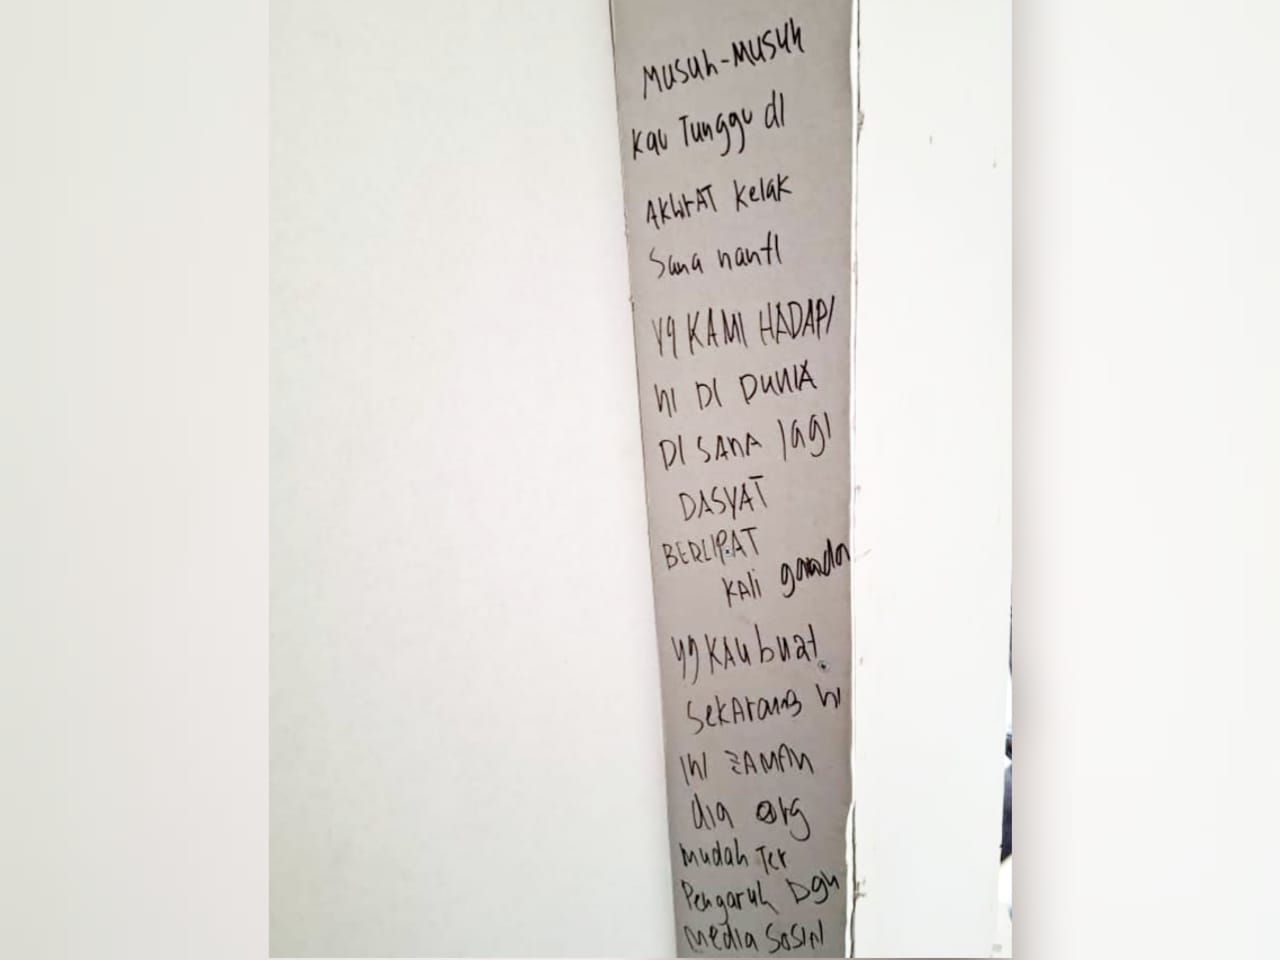 Musuh-Musuh
Kau Tunggu dI
AKhrAT Kelak
Sana nantI
Yg KAMI HADAPI
NI DI DUNIA
DI SANA lagi
DASYAT
BERLIPAT
KALi ganda
yg KAU buat
SekArang NI
INI ZAMAN
dia Org
Mudah Ter
Pengaruh Dgn
Media SoSIAl